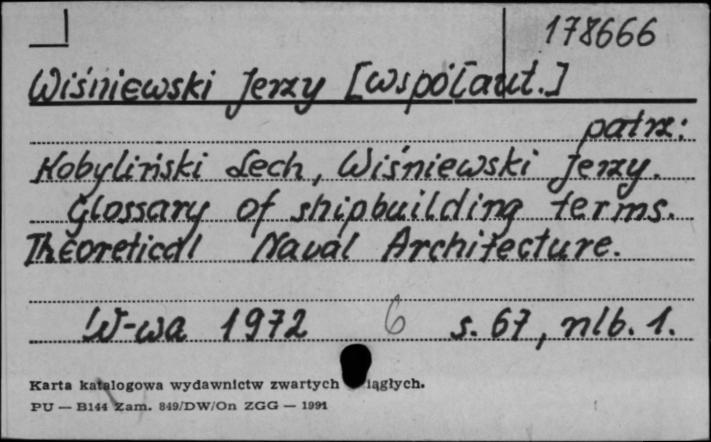 178666
Wiśniewski Jerzy [współaut.]
patrz:
Kobyliński Lech, Wiśniewski Jerzy.
Glossary of shipbuilding terms.
Theoretical Naval Architecture.
W-wa 1972 6 s. 67, nlb. 1.
Karta katalogowa wydawnictw zwartych iągłych.
PU — B144 Zam. 849/DW/On ZGG — 1991